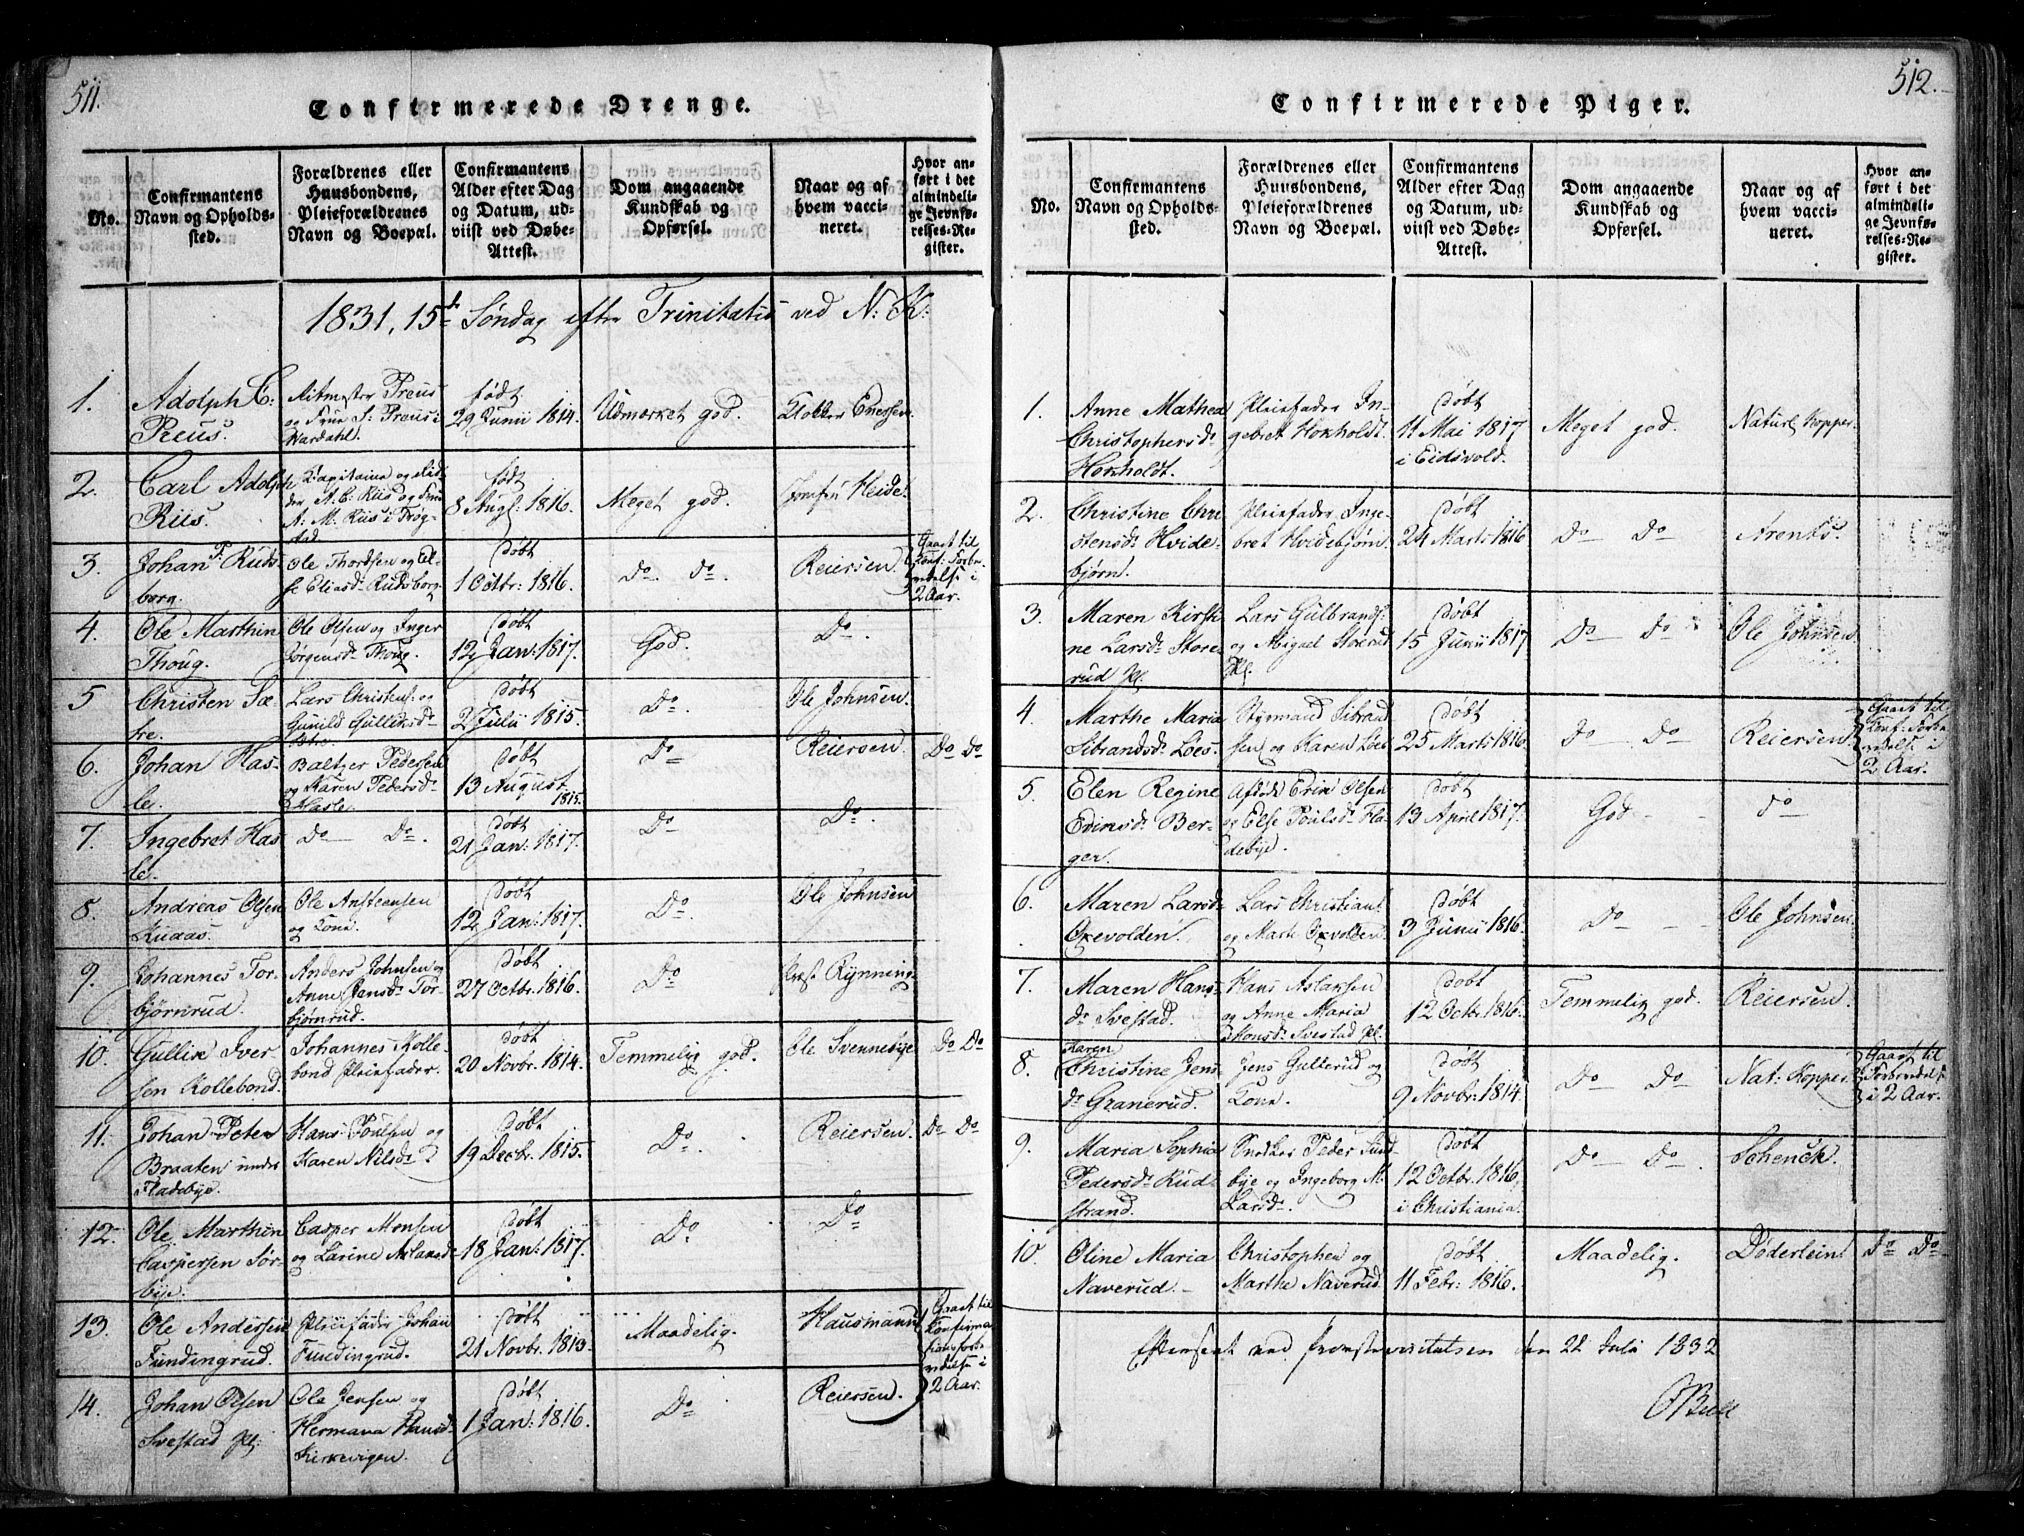 511.
Confirmerede Drenge.
No.
Confirmantens
Navn og Opholds-
sted.
Forældrenes eller
Huusbondens,
Pleieforældrenes
Navn og Boepæl.
Confirmantens
Alder efter Dag
og Datum, ud-
viist ved Døbe-
Attest.
Dom angaaende
Kundskab og
Opførsel.
Naar og af
hvem vacci-
neret.
Hvor an-
ført i det
almindeli-
ge Jevnfø-
relses-Re-
gister.
1831, 15de Søndag efter Trinitatis ved N: K:
1.
Adolph C:
Preus.
Ritmester Preus
og Frue S: Preus i
Wardahl.
født
29 Junii 1814.
Udmærket god.
Klokker Enersen.
2.
Carl Adolph
Riis.
Kapitaine og Rid-
der A. C. Riis og Frue
A: M. Riis i Trøg-
stad
født
8 Augs: 1816.
Meget god.
Heide.
3.
Johan F: Ruds-
borg.
Ole Thordsen og El-
se Eliasd: Rudsborg
døbt
1 Octbr: 1816.
Do. Do.
Reiersen.
Gaaet til
Conf: Forbe-
redelse i
2 Aar.
4.
Ole Marthin
Thoug.
Ole Olsen og Inger
Jørgensd: Thoug.
døbt
12 Jan: 1817.
God.
Do.
5
Christen Sæ-
tre.
Lars Christens: og
Gunild Gulliksd:
Sætre.
døbt
2 Julii 1815.
Do
Ole Johnsen.
6.
Johan Has-
le.
Baltzer Pedersen
og Karen Pedersd:
Hasle.
døbt
13 August
1815.
Do
Reiersen.
Do Do
7.
Ingebret Has-
le.
Do Do.
døbt
21 Jan: 1817.
Do
Do.
8.
Andreas Olsen
Knaas.
Ole Ansteensen
og Kone.
døbt
12 Jan: 1817.
Do.
Ole Johnsen
9.
Johannes Tor-
bjørnrud.
Anders Johnsen og
Anne Jensd: Tor-
bjørnrud.
døbt
27 Octbr: 1816.
Do
Præst Rynning.
10.
Gullix Iver-
sen Kollebond.
Johannes Kolle-
bond Pleiefader.
døbt
20 Novbr: 1814.
Temmelig god.
Ole Svennebye
Do Do
11.
Johan Peter
Braaten under
Fladebye.
Hans Poulsen og
Karen Nilsd:
døbt
19 Decbr: 1815.
Do
Reiersen.
Do Do
12.
Ole Marthin
Caspersen Sør-
bye.
Casper Monsen
og Larine Aslaksd:
døbt
18 Jan: 1817.
Do
Do
13.
Ole Andersen
Fundingrud.
Pleiefader Johan
Fundingrud.
døbt
21 Novbr: 1813.
Maadelig.
Hausmann
Gaaet til
Confirma-
tionsforbe-
redelse i
2 Aar.
14.
Johan Olsen
Svestad Pl:
Ole Jensen og
Hermana Hansd:
Kirkevigen.
døbt
1 Jan: 1816.
Do
Reiersen.
512.
Confirmerede Piger.
No.
Confirmantens
Navn og Opholds-
sted.
Forældrenes eller
Huusbondens,
Pleieforældrenes
Navn og Boepæl.
Confirmantens
Alder efter Dag
og Datum, ud-
viist ved Døbe-
Attest.
Dom angaaende
Kundskab og
Opførsel.
Naar og af
hvem vacci-
neret.
Hvor an-
ført i det
almindeli-
ge Jevnfø-
relses-Re-
gister.
1.
Anne Mathea
Christophersd:
Hoxholdt.
Pleiefader In-
gebret Hoxholdt.
døbt
11 Mai 1817
i Eidsvold.
Meget god.
Naturl. Kopper.
2.
Christine Chri-
stensd: Hvide-
bjørn.
Pleiefader Inge-
bret Hvidebjørn
døbt
24 Marts 1816
Do Do
Arents.
3.
Maren Kirsti-
ne Larsd: Store-
rud Pl.
Lars Gulbrands:
og Abigael Storerud
Pl.
døbt
15 Junii 1817
Do Do
Ole Johnsen
4.
Marthe Maria
Sibrandsd: Loes.
Styrmand Sibrand-
sen og Karen Loes
døbt
25 Marts 1816.
Do Do
Reiersen.
Gaaet til
Conf: Forbe-
redelse i
2 Aar.
5.
Elen Regine
Evensd: Ber-
ger.
Afdøde Even Olsen
og Else Poulsd: Fla-
debye.
døbt
13 April 1817.
God
Do
6.
Maren Larsd:
Oxevolden.
Lars Christians:
og Marte Oxvolden.
døbt
3 Junii 1816.
Do
Ole Johnsen.
7.
Maren Hans-
d: Svestad.
Hans Aslaksen
og Anne Maria
Monsd: Svestad Pl.
døbt
12 Octbr: 1816.
Temmelig god.
Reiersen.
8.
Karen
Christine Jens-
d: Granerud.
Jens Gulterud og
Kone.
døbt
9 Novbr: 1814
Do Do
Nat: Kopper.
Gaaet til
Forberedelse
i 2 Aar.
9.
Maria Sophia
Pedersd: Rud-
strand.
Snedker Peder Sund-
bye og Ingeborg M.
Larsd:
døbt
12 Octbr: 1816,
i Christiania.
Do Do.
Schenck.
10.
Oline Maria
Naverud.
Christopher og
Marthe Naverud.
døbt
11 Febr: 1816.
Maadelig.
Døderlein
Do Do
Efterseet ved Provstevisitatsen den 22 Juli 1832
OBull